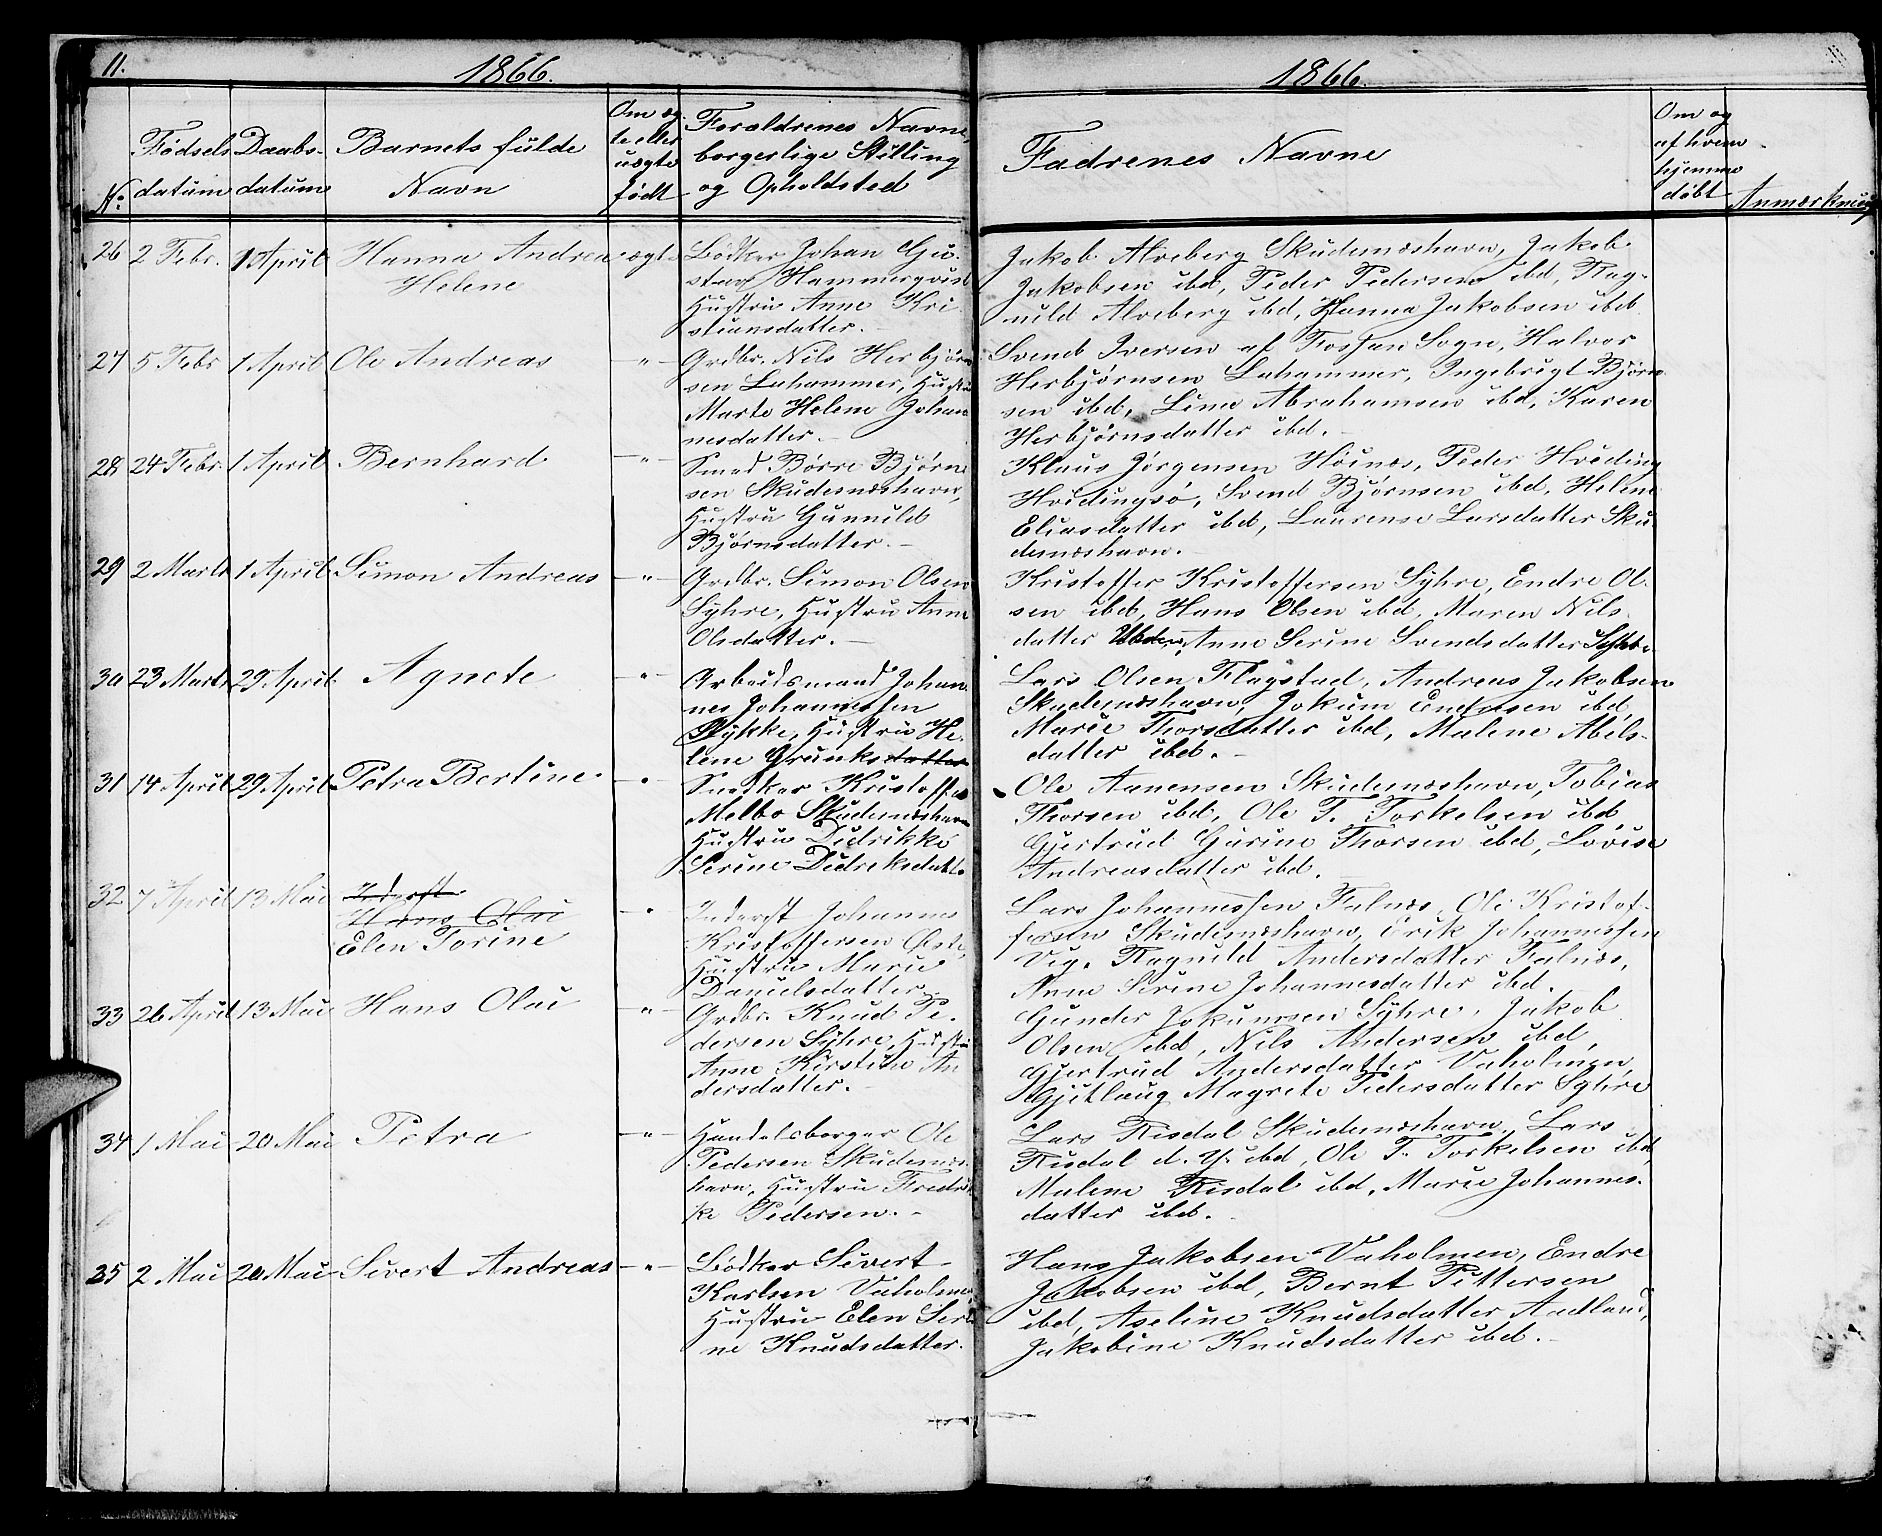 11.
1866.
1866.
No.
Fødsels
datum
Daabs-
datum
Barnets fulde
Navn
Om æg-
te eller
uægte
født
Forældrenes Navne,
borgerlige Stilling
og Opholdsted
Fadrenes Navne
Om og
af hvem
hjemme
døbt
Anmærkning
26 2 Febr. 1 April Hanna Andrea ægte
Helene
Bødker Johan Gu-
stav Hammerqvist
Hustru Anne Kri
stiansdatter.
Jakob Alveberg Skudesneshavn, Jakob
Jakobsen ibd, Peder Pedersen ibd, Rag-
nild Alveberg ibd, Hanna Jakobsen ibd
27 5 Febr 1 April Ole Andreas -"-
Grdbr. Nils Herbjørn
sen Luhammer, Hustru
Marte Helene Johan
nesdatter.
Svend Iversen af Fossan Sogn, Halvor
Herbjørnsen Luhammer, Ingebrigt Bjørn
sen ibd, Lina Abrahamsen ibd, Karen
Herbjørnsdatter ibd.
28 24 Febr. 1 April Bernhard -"-
Smed Børre Bjørn
sen Skudesneshavn,
Hustru Gunnild
Bjørnsdatter.
Klaus Jørgensen Høines, Peder Hviding
Hvidingsø, Svend Bjørnsen ibd, Helene
Eliasdatter ibd, Laurense Larsdatter Sku
desneshavn.
29 2 Marts 1 April Simon Andreas -"-
Grdbr. Simon Olsen
Syhre, Hustru Anne
Olsdatter.
Kristoffer Kristoffersen Syhre, Endre Ol-
sen ibd, Hans Olsen ibd, Maren Nils
datter Anne Serine Svendsdatter Syhre.
30 23 Marts 29 April Agnete -"-
Arbeidsmand Johan
nes Johannessen
Stykke, Hustru He-
lene Grunksdatter
Lars Olsen Flagstad, Andreas Jakobsen
Skudesneshavn, Jokum Endresen ibd
Marie Thorsdatter ibd, Malene Abels-
datter ibd.
31 14 April 29 April Petra Bertine -"-
Snedker Kristoffer
Melbo Skudesneshavn
Hustru Didrikke
Serine Didriksdatt.
Ole Aanensen Skudesneshavn, Tobias
Thorsen ibd, Ole T. Torkelsen ibd
Gjertrud Gurine Thorsen ibd, Lovise
Andreasdatter ibd.
32 7 April 13 Mai Inderst -"-
Hans Olai
Elen Torine
Inderst Johannes
Kristoffersen
Hustru Marie
Danielsdatter
Lars Johannessen Falnes, Ole Kristof-
fersen Skudesneshavn, Erik Johannessen
Vig, Ragnild Andersdatter Falnes,
Anne Serine Johannesdatter ibd.
33 26 April 13 Mai Hans Olai -"-
Grdbr. Knud Pe-
dersen Syhre, Hustru
Anne Kirstine An
dersdatter.
Gunder Jokumsen Syhre, Jakob
Olsen ibd, Nils Andersen ibd,
Gjertrud Andersdatter Vaholmen,
Gjitlaug Magrete Pedersdatter Syhre
34 1 Mai 20 Mai Petra -"-
Handelsborger Ole
Pedersen Skudesnes-
havn, Hustru Fredrik
ke Pedersen.
Lars Risdal Skudesneshavn, Lars
Risdal d. Y. ibd, Ole T. Torkelsen ibd,
Malene Risdal ibd, Marie Johannes-
datter ibd.
35 2 Mai 20 Mai Sivert Andreas -"-
Bødker Sivert
Karlsen Vaholmen,
Hustru Elen Seri
ne Knudsdatter.
Hans Jakobsen Vaholmen, Endre
Jakobsen ibd, Bernt Pettersen
ibd, Aseline Knudsdatter Aadland,
Jakobine Knudsdatter ibd.